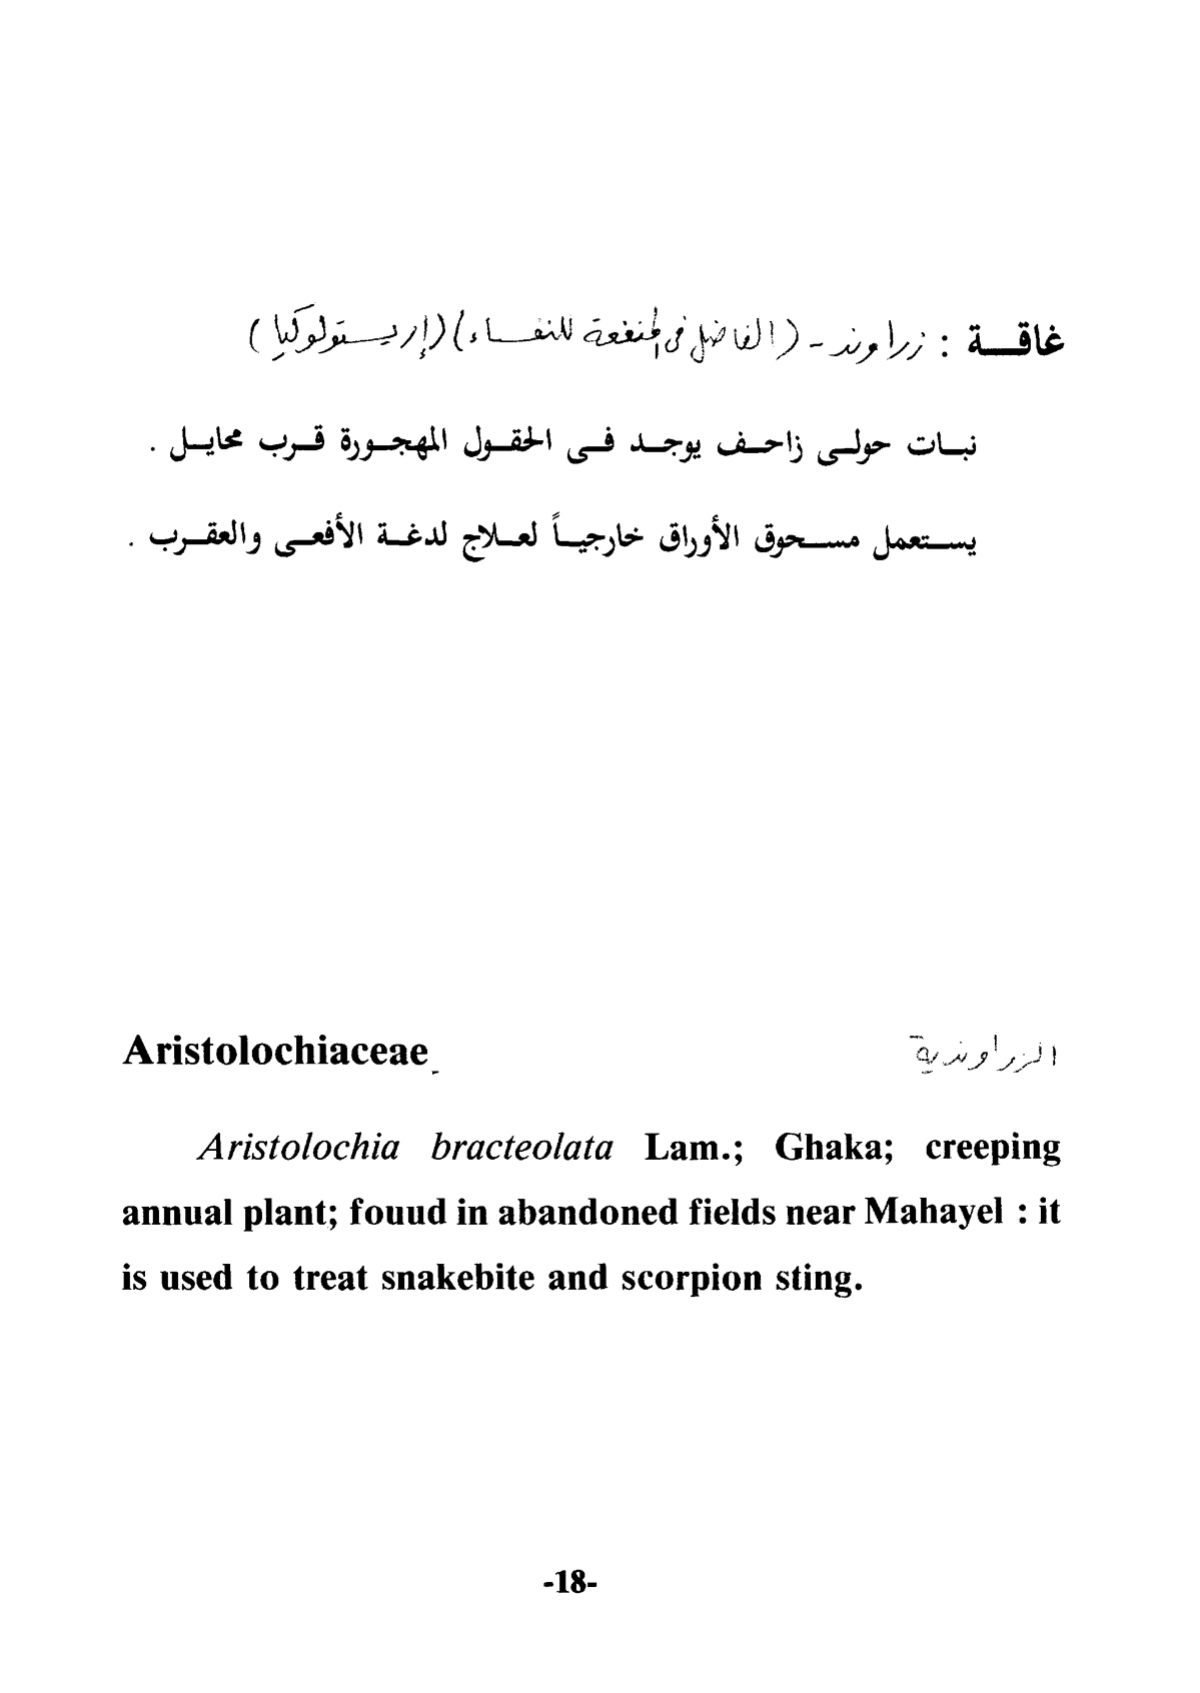 غاقة : زراوند - (الفاضل فى المنفعة للنفساء) (إريستولوكيا)
نبات حولى زاحف يوجد فى الحقول المهجورة قرب محايل .
يستعمل مسحوق الأوراق خارجياً لعلاج لدغة الأفعى والعقرب .
Aristolochiaceae الزراوندية
Aristolochia bracteolata Lam.; Ghaka; creeping
annual plant; fouud in abandoned fields near Mahayel : it
is used to treat snakebite and scorpion sting.
-18-